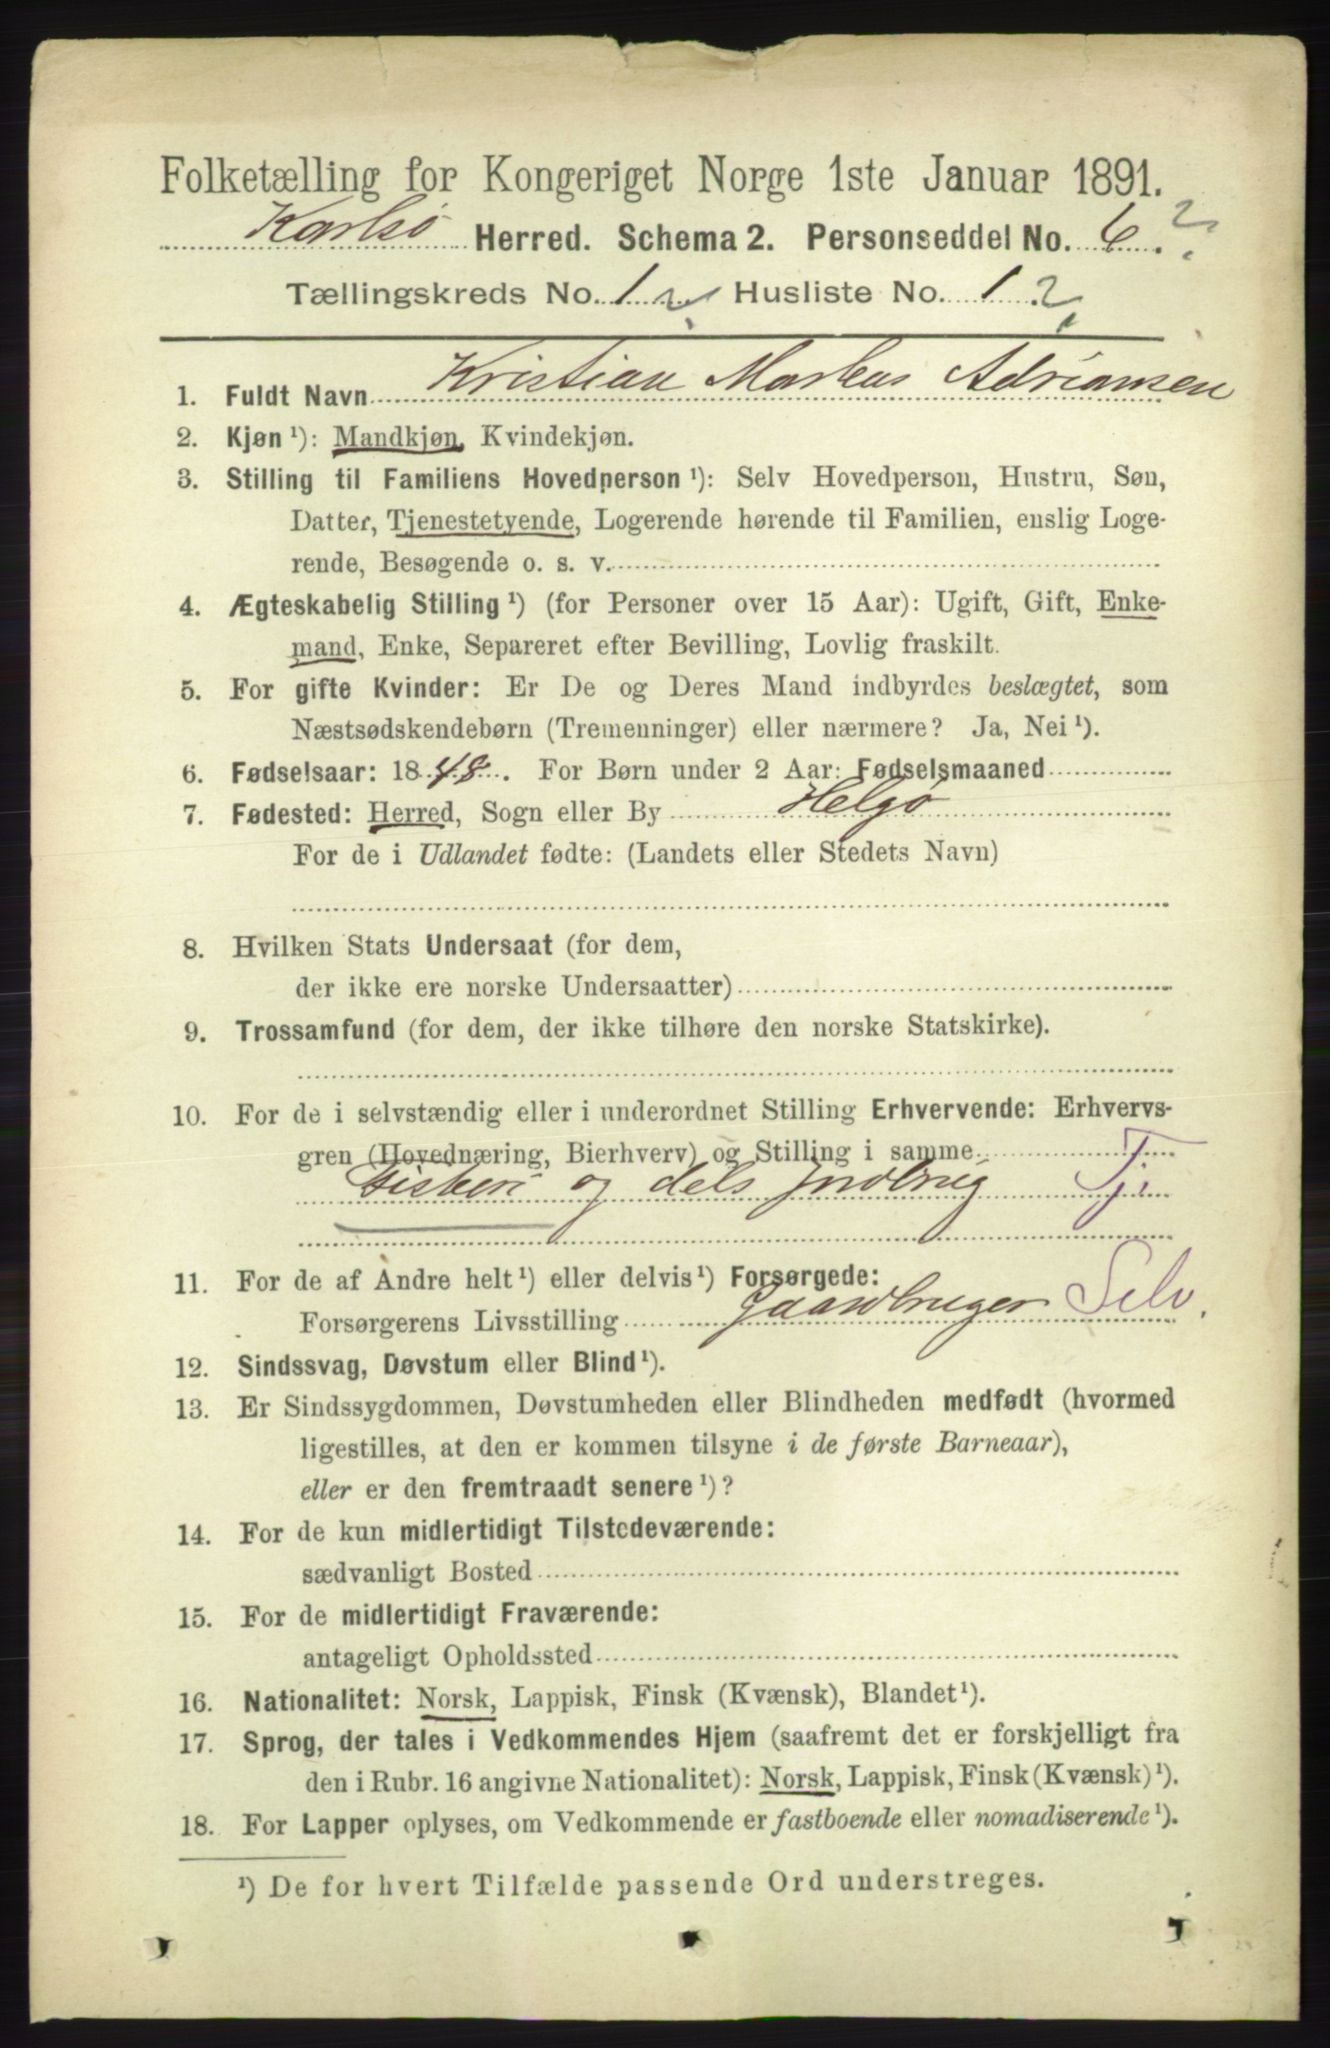 Folketælling for Kongeriget Norge 1ste Januar 1891.
Karlsø Herred. Schema 2. Personseddel No. 6. ?
Tællingskreds No. 1 ? Husliste No. 1 ?
1. Fuldt Navn Kristian Markus Adriansen
2. Kjøn ¹): Mandkjøn, Kvindekjøn.
3. Stilling til Familiens Hovedperson ¹): Selv Hovedperson, Hustru, Søn,
Datter, Tjenestetyende, Logerende hørende til Familien, enslig Loge-
rende, Besøgende o. s. v.
4. Ægteskabelig Stilling ¹) (for Personer over 15 Aar): Ugift, Gift, Enke-
mand, Enke, Separeret efter Bevilling, Lovlig fraskilt.
5. For gifte Kvinder: Er De og Deres Mand indbyrdes beslægtet, som
Næstsødskendebørn (Tremenninger) eller nærmere? Ja, Nei ¹).
6. Fødselsaar: 1848. For Børn under 2 Aar: Fødselsmaaned
7. Fødested: Herred, Sogn eller By Helgø
For de i Udlandet fødte: (Landets eller Stedets Navn)
8. Hvilken Stats Undersaat (for dem,
der ikke ere norske Undersaatter)
9. Trossamfund (for dem, der ikke tilhøre den norske Statskirke).
10. For de i selvstændig eller i underordnet Stilling Erhvervende: Erhvervs-
gren (Hovednæring, Bierhverv) og Stilling i samme
Fiskeri og dels Jndbrug Tj.
11. For de af Andre helt ¹) eller delvis ¹) Forsørgede:
Forsørgerens Livsstilling Gaardbruger Selv.
12. Sindssvag, Døvstum eller Blind ¹).
13. Er Sindssygdommen, Døvstumheden eller Blindheden medfødt (hvormed
ligestilles, at den er kommen tilsyne i de første Barneaar),
eller er den fremtraadt senere ¹)?
14. For de kun midlertidigt Tilstedeværende:
sædvanligt Bosted
15. For de midlertidigt Fraværende:
antageligt Opholdssted
16. Nationalitet: Norsk, Lappisk, Finsk (Kvænsk), Blandet ¹).
17. Sprog, der tales i Vedkommendes Hjem (saafremt det er forskjelligt fra
den i Rubr. 16 angivne Nationalitet): Norsk, Lappisk, Finsk (Kvænsk) ¹).
18. For Lapper oplyses, om Vedkommende er fastboende eller nomadiserende ¹).
¹) De for hvert Tilfælde passende Ord understreges.